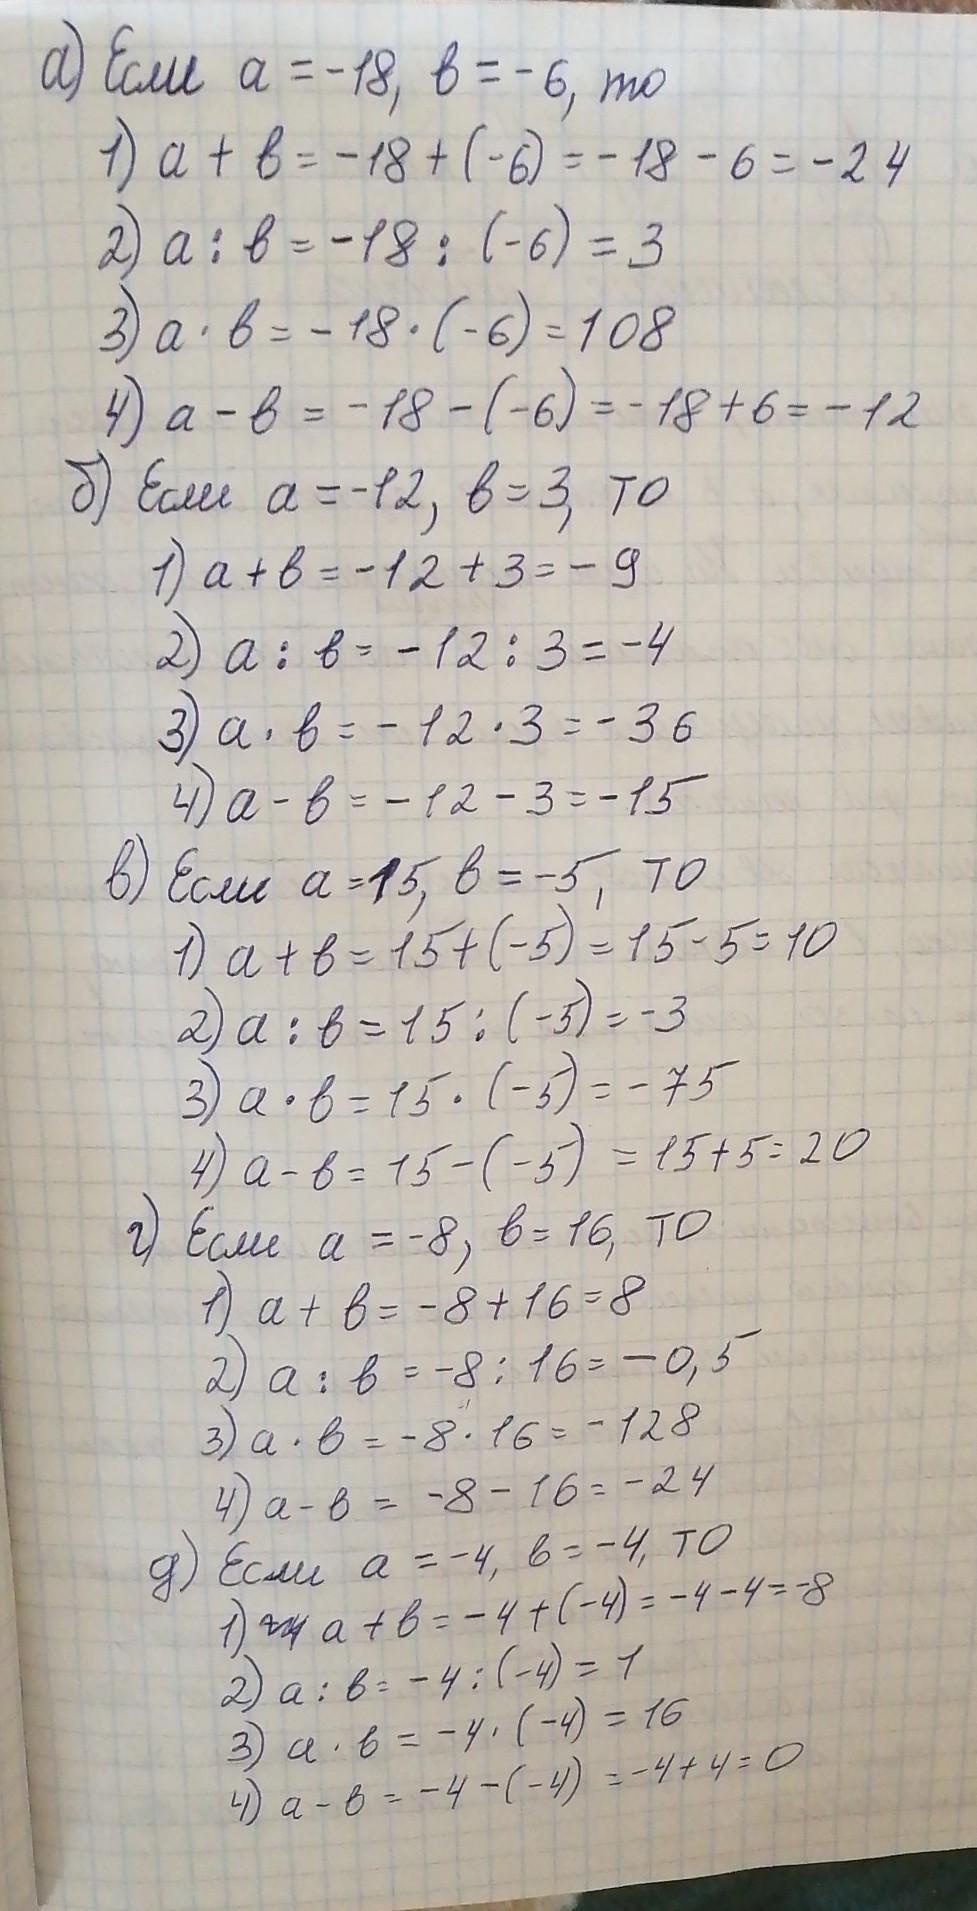 а) Если a = -18, b = -6, то
1) a + b = -18 + (-6) = -18 - 6 = -24
2) a : b = -18 : (-6) = 3
3) a · b = -18 · (-6) = 108
4) a - b = -18 - (-6) = -18 + 6 = -12
б) Если a = -12, b = 3, то
1) a + b = -12 + 3 = -9
2) a : b = -12 : 3 = -4
3) a · b = -12 · 3 = -36
4) a - b = -12 - 3 = -15
в) Если a = 15, b = -5, то
1) a + b = 15 + (-5) = 15 - 5 = 10
2) a : b = 15 : (-5) = -3
3) a · b = 15 · (-5) = -75
4) a - b = 15 - (-5) = 15 + 5 = 20
г) Если a = -8, b = 16, то
1) a + b = -8 + 16 = 8
2) a : b = -8 : 16 = -0,5
3) a · b = -8 · 16 = -128
4) a - b = -8 - 16 = -24
д) Если a = -4, b = -4, то
1) a + b = -4 + (-4) = -4 - 4 = -8
2) a : b = -4 : (-4) = 1
3) a · b = -4 · (-4) = 16
4) a - b = -4 - (-4) = -4 + 4 = 0